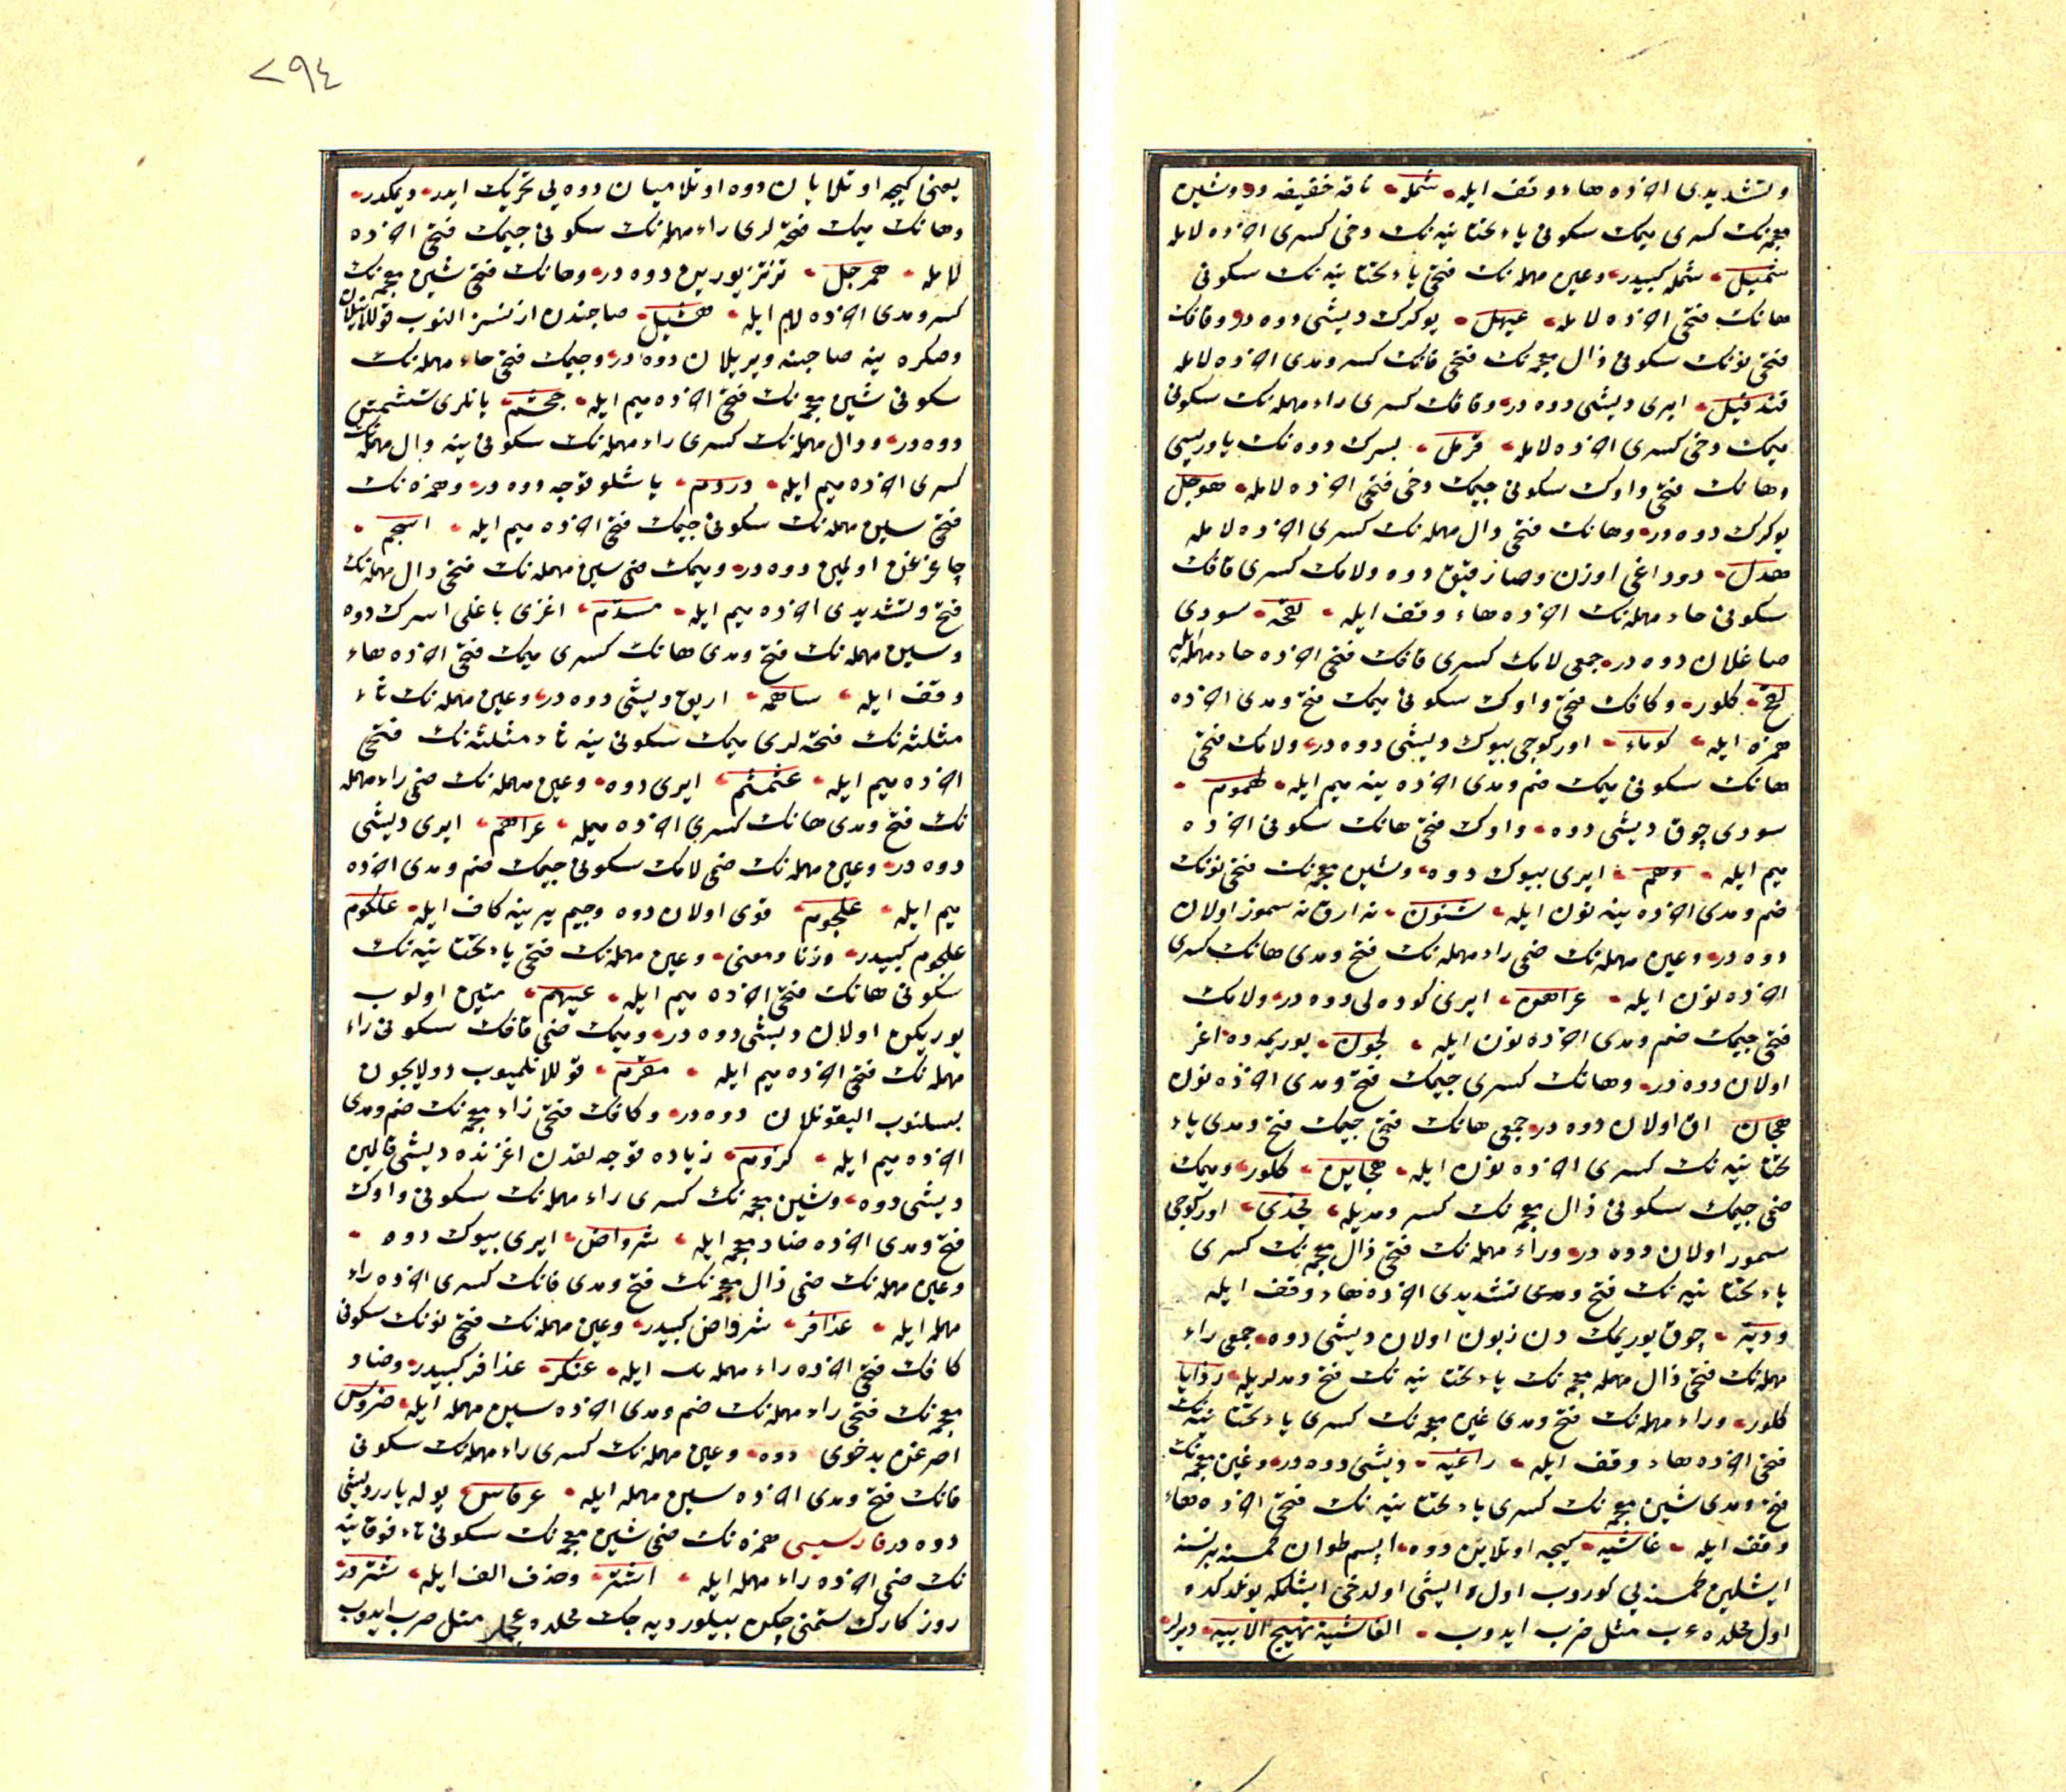 وتشديدى اخرده هاء وقف ايله شمله ناقه خفيفه در وشين
معجمه‌نك كسرى ميمك سكونى ياء تحتانيه‌نك دخى كسرى اخرده لامله
شمليل شمله كبيدر وعين مهمله‌نك فتحى ياء تحتانيه‌نك سكونى
هانك فتحى اخرده لامله عيهل يوكرك ديشى دوه در وقافك
فتحى نونك سكونى ذال معجمه‌نك فتحى فانك كسر ومدى اخرده لامله
قندفيل ايرى ديشى دوه در وقافك كسرى راء مهمله‌نك سكونى
ميمك دخى كسرى اخرده لامله قرمل بسرك دوه‌نك ياوريسى
وهانك فتحى واوك سكونى جيمك دخى فتحى اخرده لامله هوجل
يوكرك دوه در وهانك فتحى دال مهمله‌نك كسرى اخرده لامله
هدل دوداغى اوزن وصارقيق دوه ولامك كسرى قافك
سكونى حاء مهمله‌نك اخرده هاء وقف ايله لقحه سودى
صاغلان دوه در جمعى لامك كسرى قافك فتحى اخرده حاء مهمله ايله
لقح كلور وكافك فتحى واوك سكونى ميمك فتح ومدى اخرده
همزه ايله كوماء اوركوجى بيوك ديشى دوه در ولامك فتحى
هانك سكونى ميمك ضم ومدى اخرده ينه ميم ايله لهموم
سودى چوق ديشى دوه واوك فتحى هانك سكونى اخرده
ميم ايله وهم ايرى بيوك دوه وشين معجمه‌نك فتحى نونك
ضم ومدى اخرده ينه نون ايله شنون نه ارق نه سموز اولان
دوه در وعين مهمله‌نك ضمى راء مهمله‌نك فتح ومدى هانك كسرى
اخرده نون ايله عراهن ايرى كوده‌لى دوه در ولامك
فتحى جيمك ضم ومدى اخرده نون ايله لجون يوريمه‌ده اغر
اولان دوه در وهانك كسرى جيمك فتح ومدى اخرده نون
هجان اق اولان دوه در جمعى هانك فتحى جيمك فتح ومدى ياء
تحتانيه‌نك كسرى اخرده نون ايله هجاين كلور وميمك
ضمى جيمك سكونى ذال معجمه‌نك كسر ومديله مجذى اوركوجى
سموز اولان دوه در وراء مهمله‌نك فتحى ذال معجمه‌نك كسرى
ياء تحتانيه‌نك فتح ومدى تشديدى اخرده هاء وقف ايله
چوق يوريمكدن زبون اولان ديشى دوه جمعى راء
مهمله‌نك فتحى ذال مهمله معجمه‌نك ياء تحتانيه‌نك فتح ومدلريله رذايا
كلور وراء مهمله‌نك فتح ومدى غين معجمه‌نك كسرى ياء تحتانيه‌نك
فتحى اخرده هاء وقف ايله راغيه ديشى دوه در وغين معجمه‌نك
فتح ومدى شين معجمه‌نك كسرى ياء تحتانيه‌نك فتحى اخرده هاء
وقف ايله غاشيه كيجه اوتلاين دوه ايسم طوان كمسنه برنسنه
ايشلين كمسنه‌يى كوروب اول ايشى اولدخى ايشلمكه يوندكده
اول محلده عرب مثل ضرب ايدوب الغاشية تهيج الآبيه ديرلر
٢٩٤
يعنى كيجه اوتلايان دوه اوتلاميان دوه‌يى تحريك ايدر ديمكدر
وهانك ميمك فتحه‌لرى راء مهمله‌نك سكونى جيمك فتحى اخرده
لامله همرجل تزتز يورين دوه در وهانك فتحى شين معجمه‌نك
كسر ومدى اخرده لام ايله هشيل صاحبندن اذنسز النوب قوللانيلان
وصكره ينه صاحبنه ويريلان دوه در وجيمك فتحى حاء مهمله‌نك
سكونى شين معجمه‌نك فتحى اخرده ميم ايله جحشم يانلرى شيشمش
دوه در ودال مهمله‌نك كسرى راء مهمله‌نك سكونى ينه دال مهمله‌نك
كسرى اخرده ميم ايله دردم ياشلو قوجه دوه در وهمزه‌نك
فتحى سين مهمله‌نك سكونى جيمك فتحى اخرده ميم ايله اسجم
چاغرغن اولمين دوه در وميمك ضمى سين مهمله‌نك فتحى دال مهمله‌نك
فتح وتشديدى اخرده ميم ايله مسدم اغزى باغلى اسرك دوه
وسين مهمله‌نك فتح ومدى هانك كسرى ميمك فتحى اخرده هاء
وقف ايله ساهمه اريق ديشى دوه در وعين مهمله‌نك ثاء
مثلثه‌نك فتحه‌لرى ميمك سكونى ينه ثاء مثلثه‌نك فتحى
اخرده ميم ايله عثمثم ايرى دوه وعين مهمله‌نك ضمى راء مهمله
نك فتح ومدى هانك كسرى اخرده ميمله عراهم ايرى ديشى
دوه در وعين مهمله‌نك ضمى لامك سكونى جيمك ضم ومدى اخرده
ميم ايله علجوم قوى اولان دوه وجيم يرينه كاف ايله علكوم
علجوم كبيدر وزنا ومعنى وعين مهمله‌نك فتحى ياء تحتانيه‌نك
سكونى هانك فتحى اخرده ميم ايله عيهم متين اولوب
يوريكن اولان ديشى دوه در وميمك ضمى قافك سكونى راء
مهمله‌نك فتحى اخرده ميم ايله مقرم قوللانلميوب دولايچون
بسلنوب اليقونلان دوه در وكافك فتحى زاء معجمه‌نك ضم ومدى
اخرده ميم ايله كزوم زياده قوجه‌لقدن اغزنده ديشى قالمين
ديشى دوه وشين معجمه‌نك كسرى راء مهمله‌نك سكونى واوك
فتح ومدى اخرده ضاد معجمه ايله شرواض ايرى بيوك دوه
وعين مهمله‌نك ضمى ذال معجمه‌نك فتح ومدى فانك كسرى اخرده راء
مهمله ايله عذافر شرواض كبيدر وعين مهمله‌نك فتحى نونك سكونى
كافك فتحى اخرده راء مهمله ايله عنكر عذافر كبيدر وضاد
معجمه‌نك فتحى راء مهمله‌نك ضم ومدى اخرده سين مهمله ايله ضروس
اصرغن بدخوى دوه وعين مهمله‌نك كسرى راء مهمله‌نك سكونى
فانك فتح ومدى اخرده سين مهمله ايله عرفاس يوله يارر ديشى
دوه در فارسيسى همزه‌نك ضمى شين معجمه‌نك سكونى تاء فوقانيه
نك ضمى اخرده راء مهمله ايله اشتر وحذف الف ايله شتر ودر
روزكارك ستمنى چكن بيلور ديه‌جك محلده عجملر مثل ضرب ايدوب